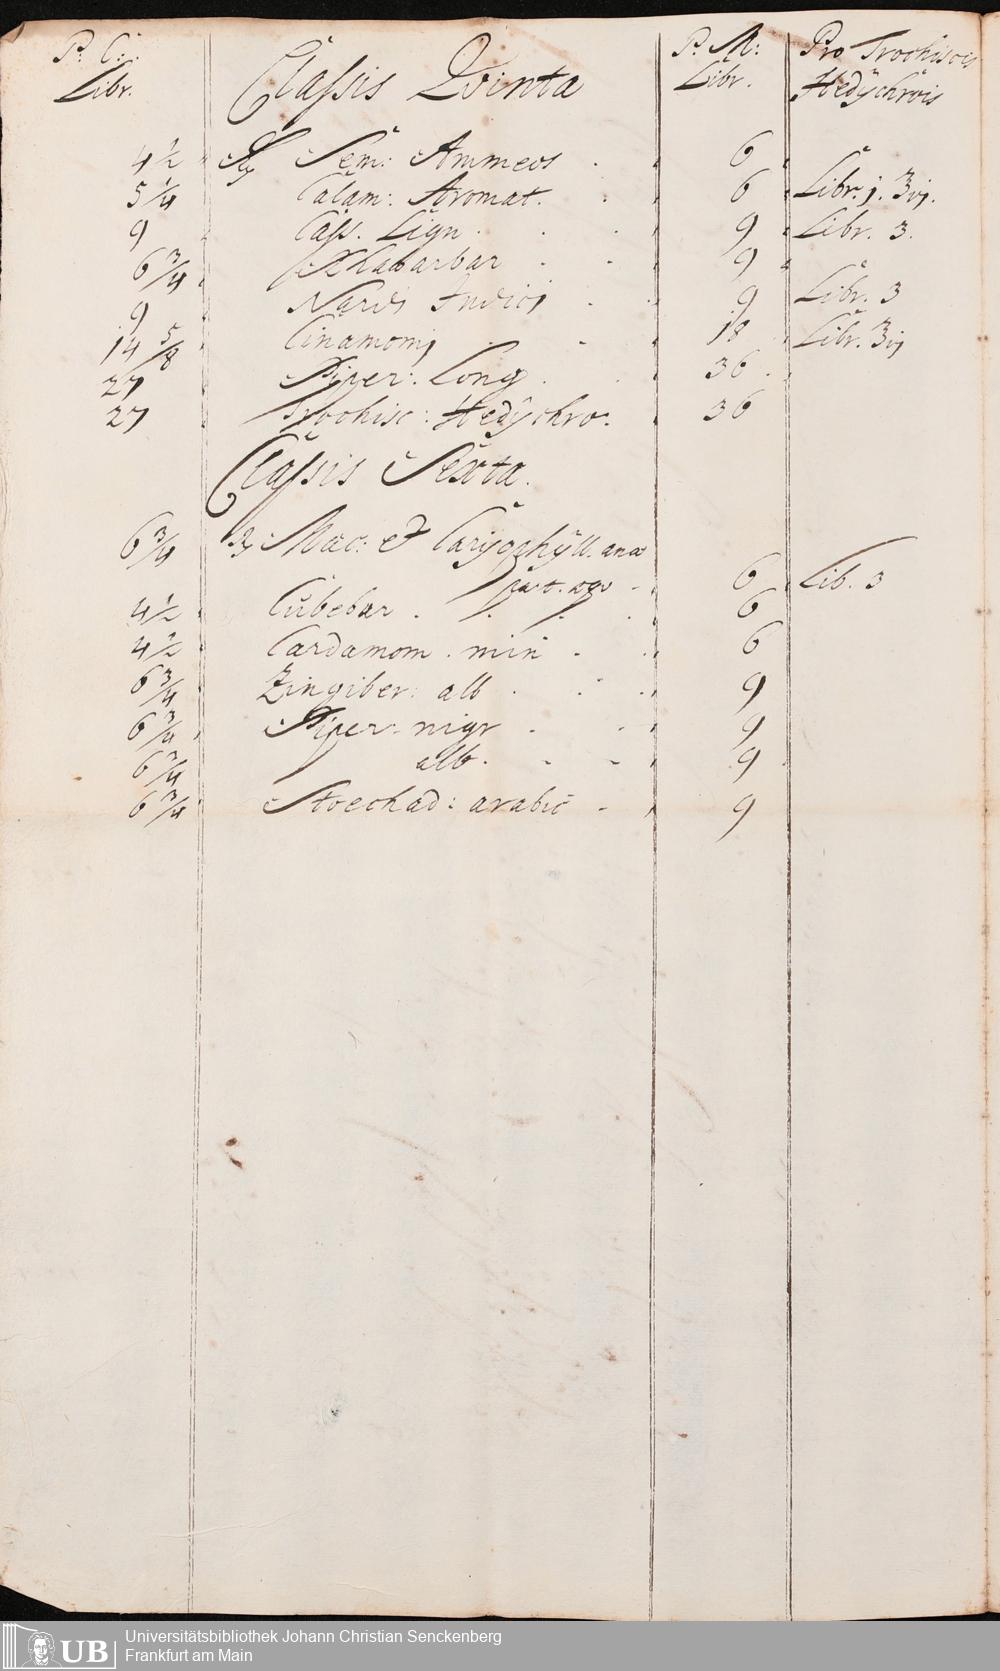 P: C: Classis Qvinta P: M: Pro Trochiscis
Libr. Libr. Hedÿchrois
4 1/2 ℞ Sem: Ammeos 6
5 1/4 Calam: Aromat. 6 Libr. j. ʒvj.
9 Cass. Lign 9 Libr. 3.
6 3/4 Rhabarbar 9
9 Nardi Indici 9 Libr. 3
14 5/8 Cinamomj 18 Libr. ʒvj
27 Piper. Long 36
27 Trochisc: Hedÿchro. 36
Classis Sexta.
6 3/4 ℞ Mac: et Carÿophÿll. ana
part. 6 Lib. 3
4 1/2 Cubebar 6
4 1/2 Cardamom. min 6
6 3/4 Zingiber: alb 9
6 3/4 Piper. nigr 9
6 3/4 alb. 9
6 3/4 Stoechad: arabic 9
UB Universitätsbibliothek Johann Christian Senckenberg
Frankfurt am Main